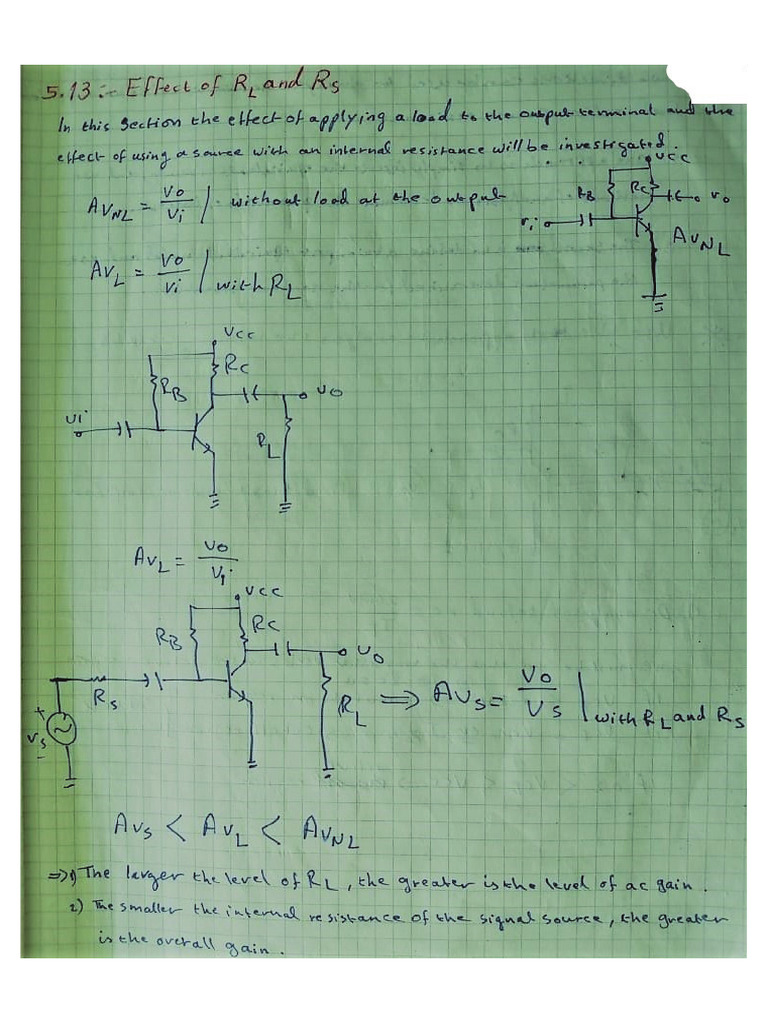 5.13:- Effect of RL and Rs
In this section the effect of applying a load to the output terminal and the
effect of using a source with an internal resistance will be investigated.
VCC
RB
RC
vo
vi
AVNL
AVNL = vo/vi | without load at the output
AVL = vo/vi | with RL
VCC
RC
RB
vo
vi
RL
AVL = vo/vi
VCC
RC
RB
vo
Rs
RL
+
vs
-
⇒ AVs = vo/vs | with RL and Rs
AVs < AVL < AVNL
⇒1) The larger the level of RL, the greater is the level of ac gain.
2) The smaller the internal resistance of the signal source, the greater
is the overall gain.